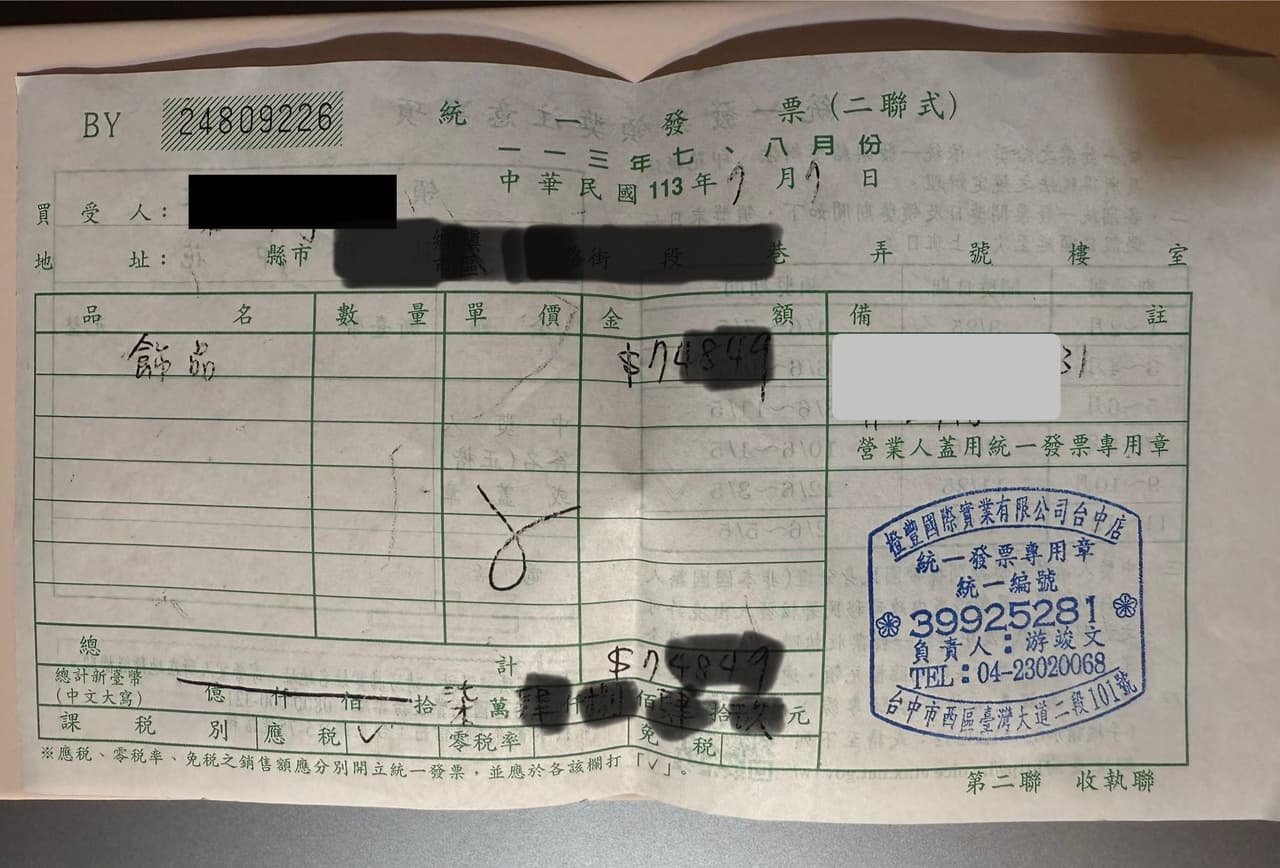 BY 24809226
統一發票(二聯式)
一一三年七、八月份
中華民國113年7月7日
買受人：
地址： 縣市 街 段 巷 弄 號 樓 室
品名 數量 單價 金額 備註
飾品 $74849
31
營業人蓋用統一發票專用章
橙豐國際實業有限公司台中店
統一發票專用章
統一編號
39925281
負責人：游竣文
TEL：04-23020068
台中市西區臺灣大道二段101號
總計 $74849
總計新臺幣
(中文大寫) 億 仟 佰 拾 柒 萬 肆 仟 捌 佰 肆 拾 玖 元
課稅別 應稅 V 零稅率 免稅
※應稅、零稅率、免稅之銷售額應分別開立統一發票，並應於各該欄打「V」。
第二聯 收執聯